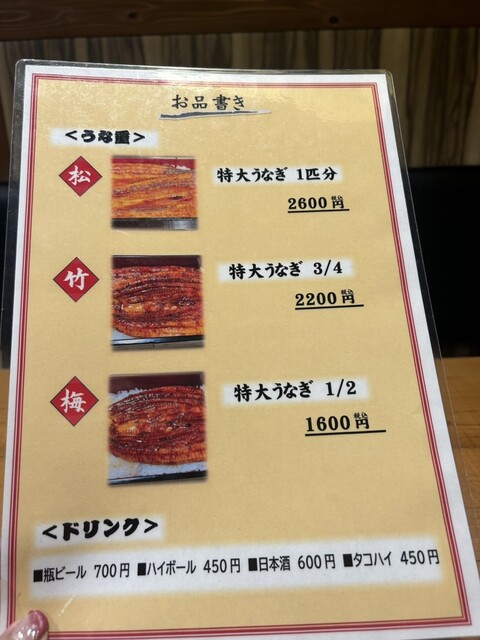 お品書き
<うな重>
松
特大うなぎ 1匹分
2600円 税込
竹
特大うなぎ 3/4
2200円 税込
梅
特大うなぎ 1/2
1600円 税込
<ドリンク>
■瓶ビール 700円 ■ハイボール 450円 ■日本酒 600円 ■タコハイ 450円